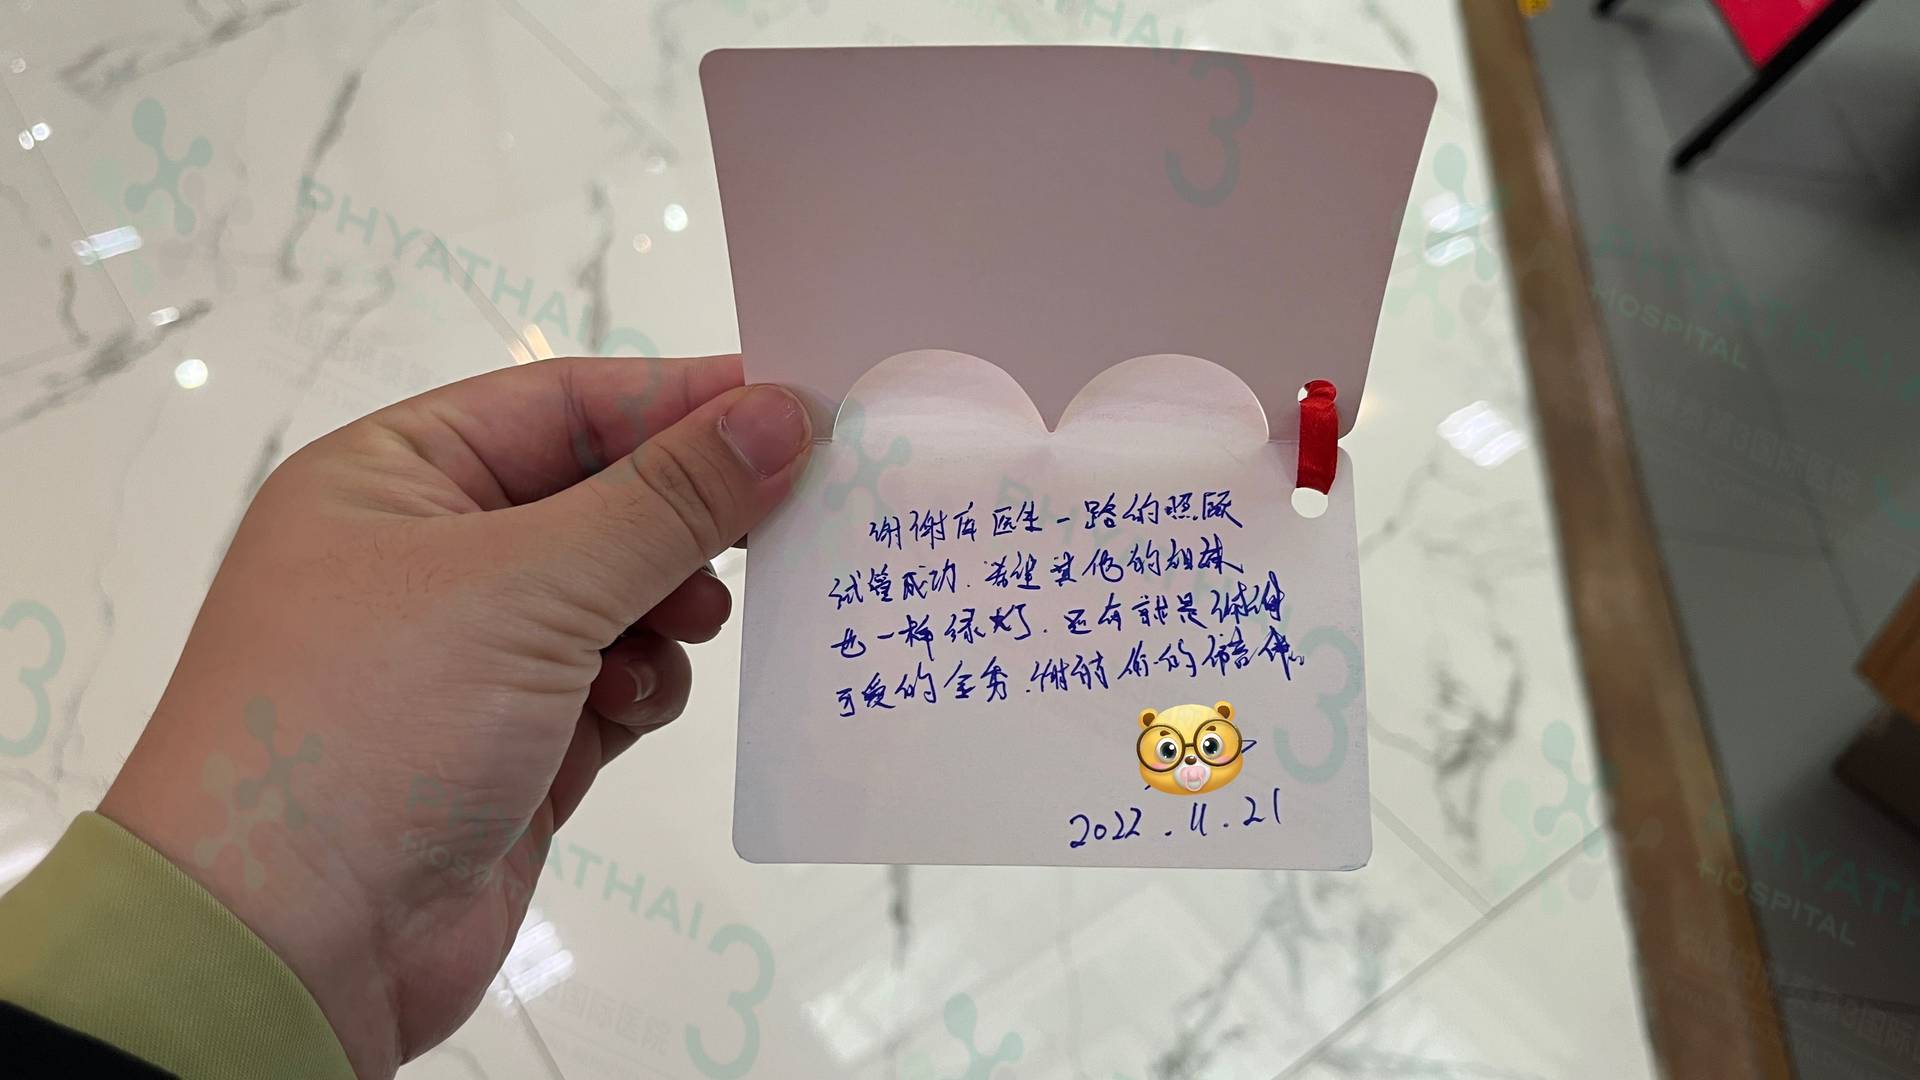 谢谢库医生一路的照顾
试管成功.希望其他的姐妹
也一样绿灯.还有就是谢谢
可爱的全秀.谢谢你的
2022.11.21
PHYATHAI 3
HOSPITAL
PHYATHAI 3
HOSPITAL
PHYATHAI 3
HOSPITAL